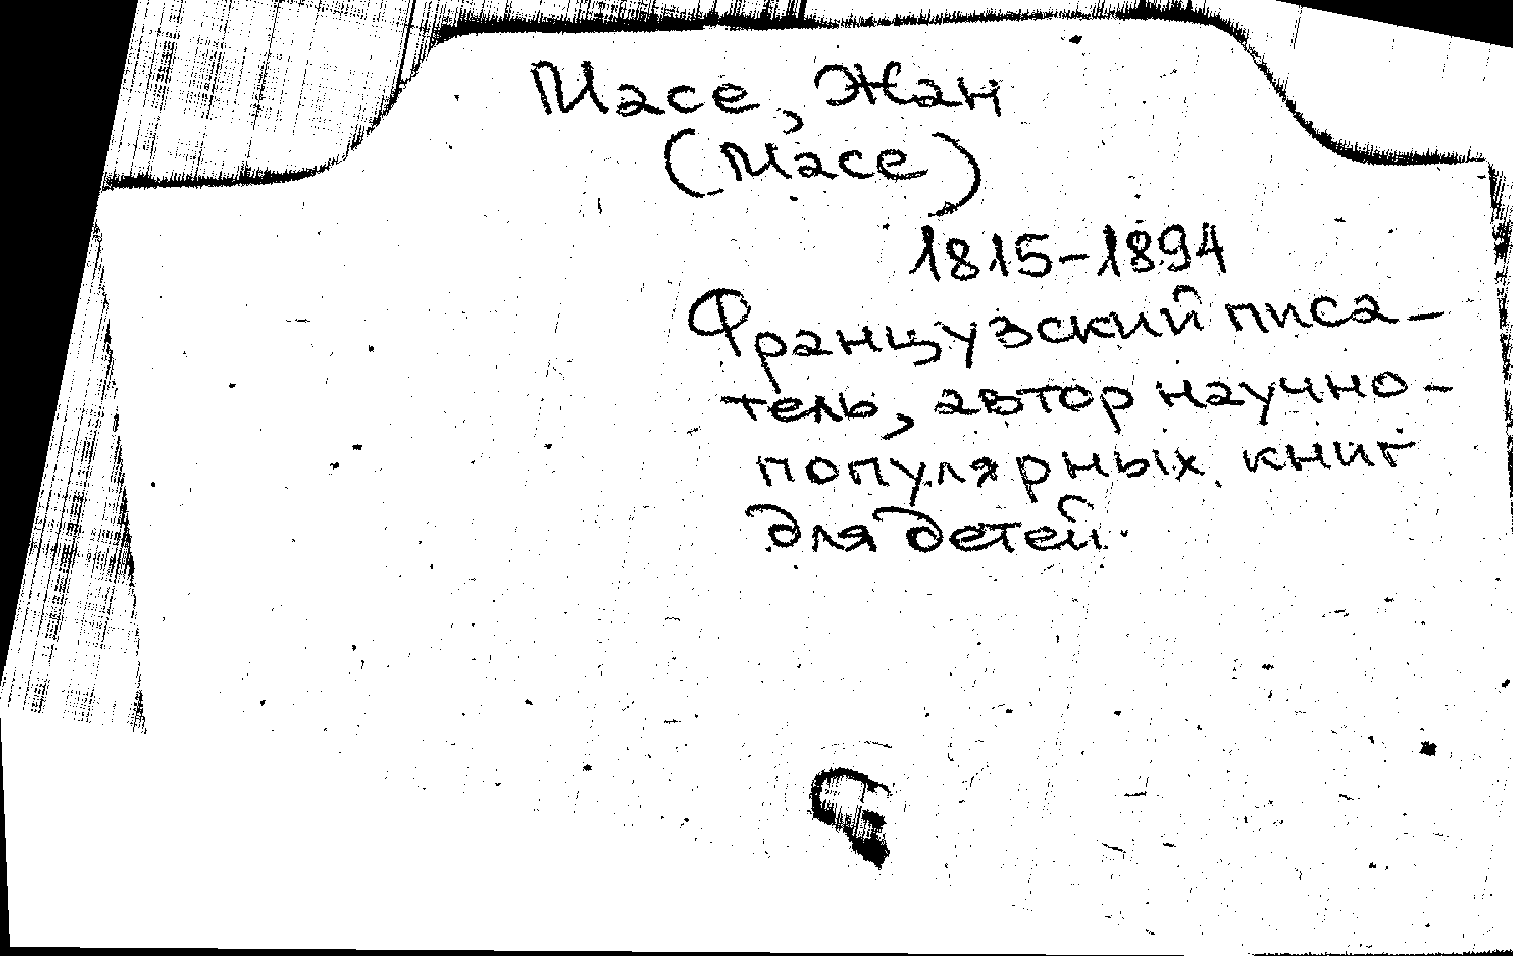 Масе, Жан
(Масе)
1815-1894
Французский писа-
тель, автор научно-
популярных книг
для детей.